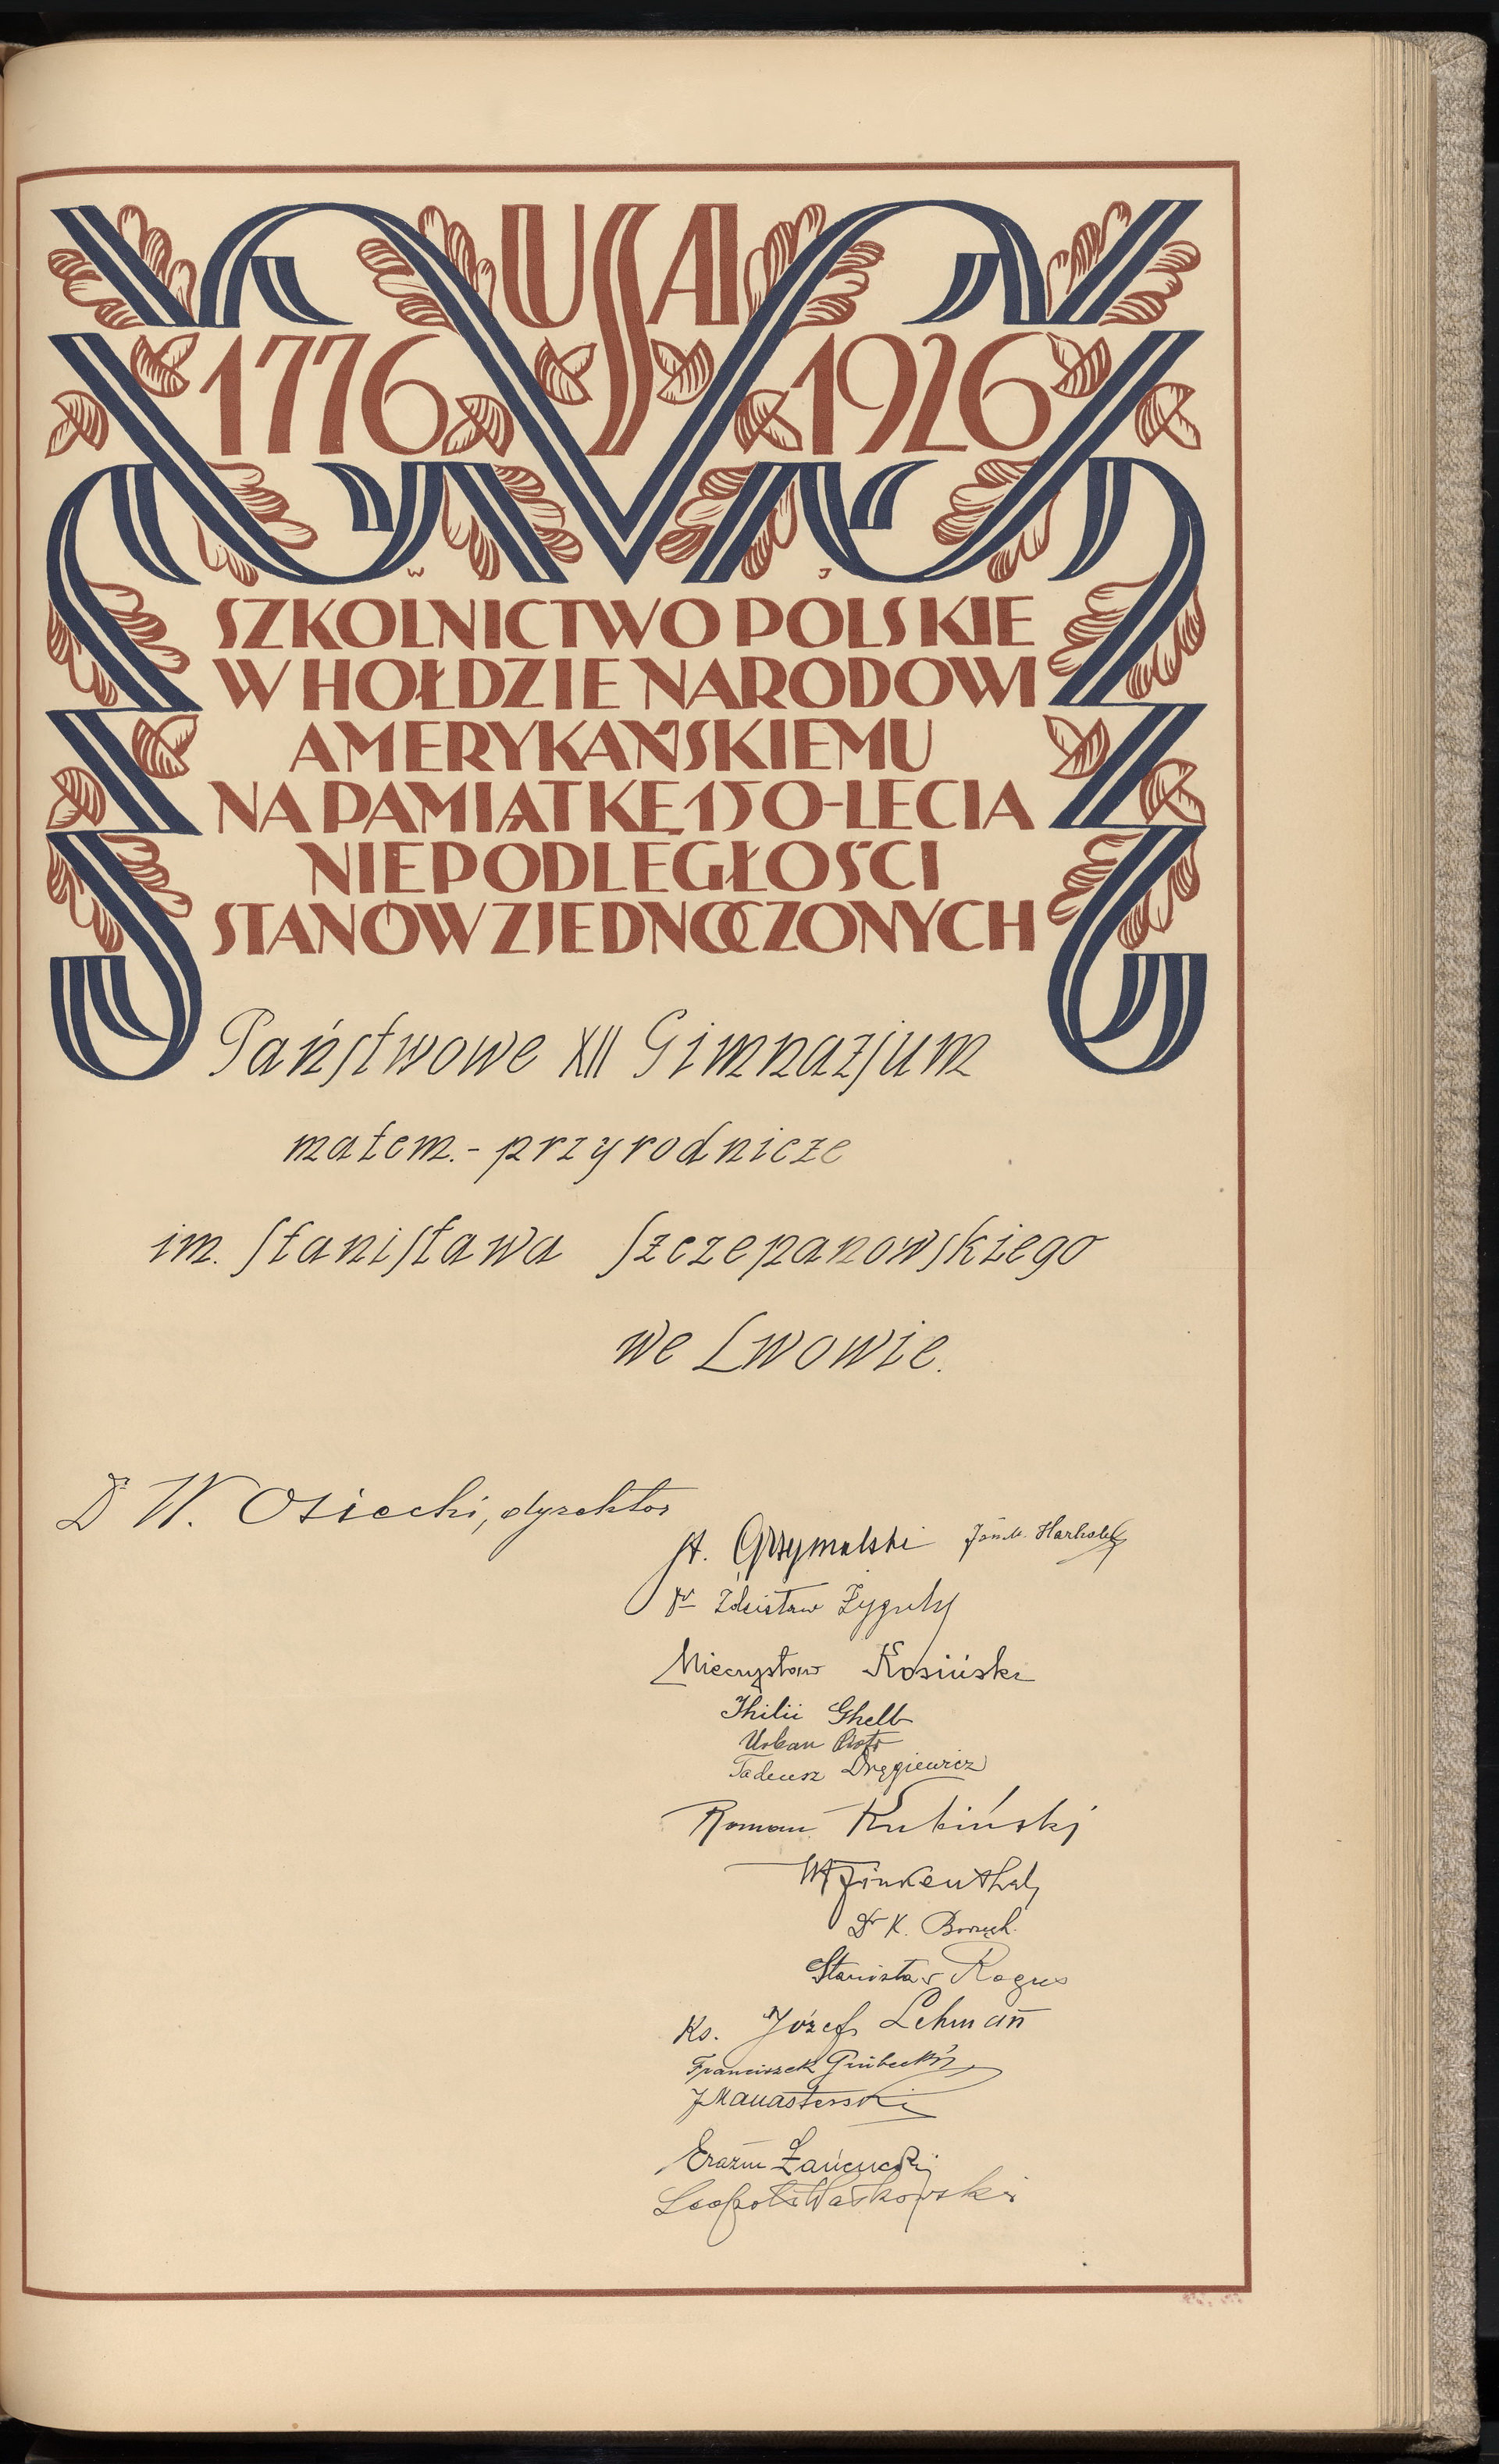 USA
1776 1926
W J
SZKOLNICTWO POLSKIE
W HOŁDZIE NARODOWI
AMERYKAŃSKIEMU
NA PAMIĄTKĘ 150-LECIA
NIEPODLEGŁOŚCI
STANÓW ZJEDNOCZONYCH
Państwowe XII Gimnazjum
matem.-przyrodnicze
im. Stanisława Szczepanowskiego
we Lwowie.
Dr W. Osiecki, dyrektor
St. Grzymalski
Dr Zdzisław Żygulski
Mieczysław Kosiński
Urban Piotr
Tadeusz Dręgiewicz
Roman Kubiński
Dr K.
Stanisław Rogus
Ks. Józef Lehmann
Franciszek
J Manasterski
Erazm Łańcucki
Leopold Waśkowski